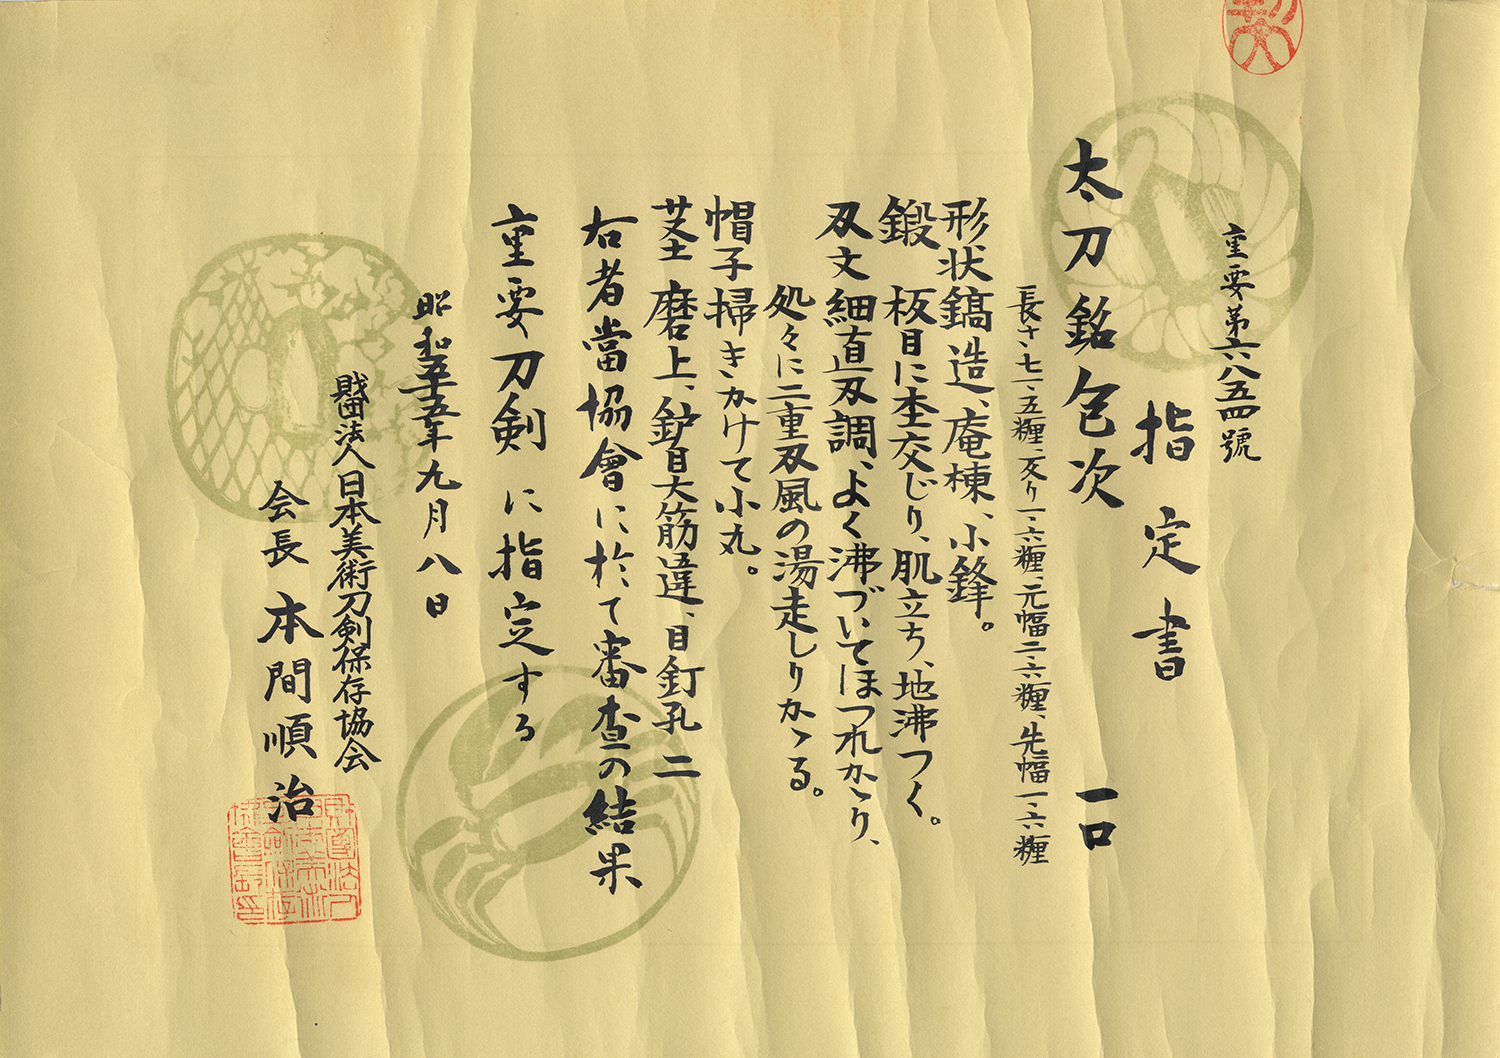 重要第六八五四號
指定書
太刀 銘 包次 一口
長さ、七一・五糎、反り一・六糎、元幅二・六糎、先幅一・六糎
形状 鎬造、庵棟、小鋒。
鍛 板目に杢交じり、肌立ち、地沸つく。
刃文 細直刃調、よく沸づいてほつれかゝり、
処々に二重刃風の湯走しりかゝる。
帽子 掃きかけて小丸。
茎 磨上、鑢目大筋違、目釘孔二
右者當協會に於て審査の結果
重要刀剣に指定する
昭和五十五年九月八日
財団法人日本美術刀剣保存協会
会長 本間順治